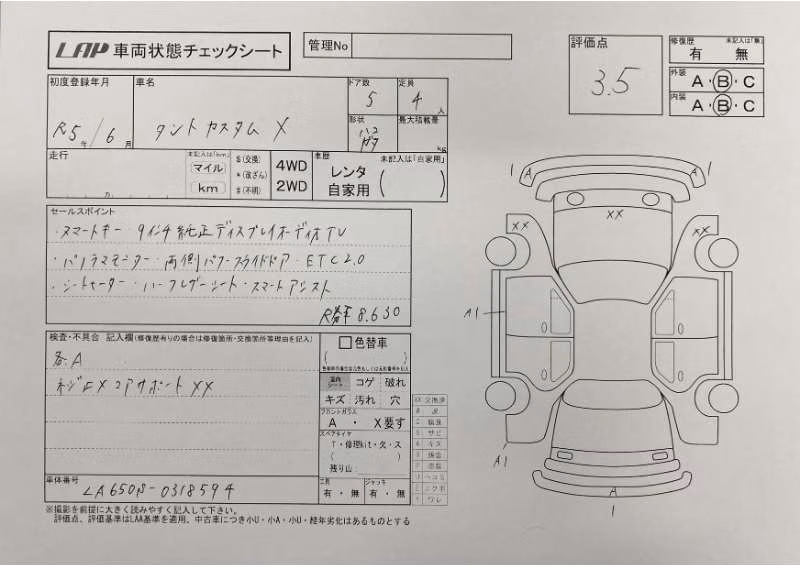 LAP 車両状態チェックシート
管理No
評価点
3.5
修復歴 未記入は「無」
有 無
外装 A・B・C
内装 A・B・C
初度登録年月
R5年/6月
車名
タント カスタム X
ドア数
5
定員
4人
形状
ハコ
最大積載量
kg
走行
未記入は「km」
マイル
km
$(交換)
*(改ざん)
#(不明)
4WD
2WD
車歴 未記入は「自家用」
レンタ
自家用
セールスポイント
・スマートキー 9インチ純正ディスプレイオーディオTV
・パノラマモニター・両側パワースライドドア・ETC2.0
・シートヒーター・ハーフレザーシート・スマートアシスト
8.630
検査・不具合 記入欄(修復歴有りの場合は修復箇所・交換箇所等理由を記入)
各A
ネジFX コアサポートXX
色替車
室内
シート
コゲ 破れ
キズ 汚れ 穴
フロントガラス
A・X要す
スペアタイヤ
T・修理kit・欠・ス
残り山
工具
有・無
ジャッキ
有・無
XX 交換済
車体番号
LA650S-0318594
※撮影を前提に大きく読みやすく記入して下さい。
評価点、評価基準はLAA基準を適用、中古車につき小U・小A・小U・経年劣化はあるものとする
1 A A 1
XX
XX
XX
A1
A1
A
1